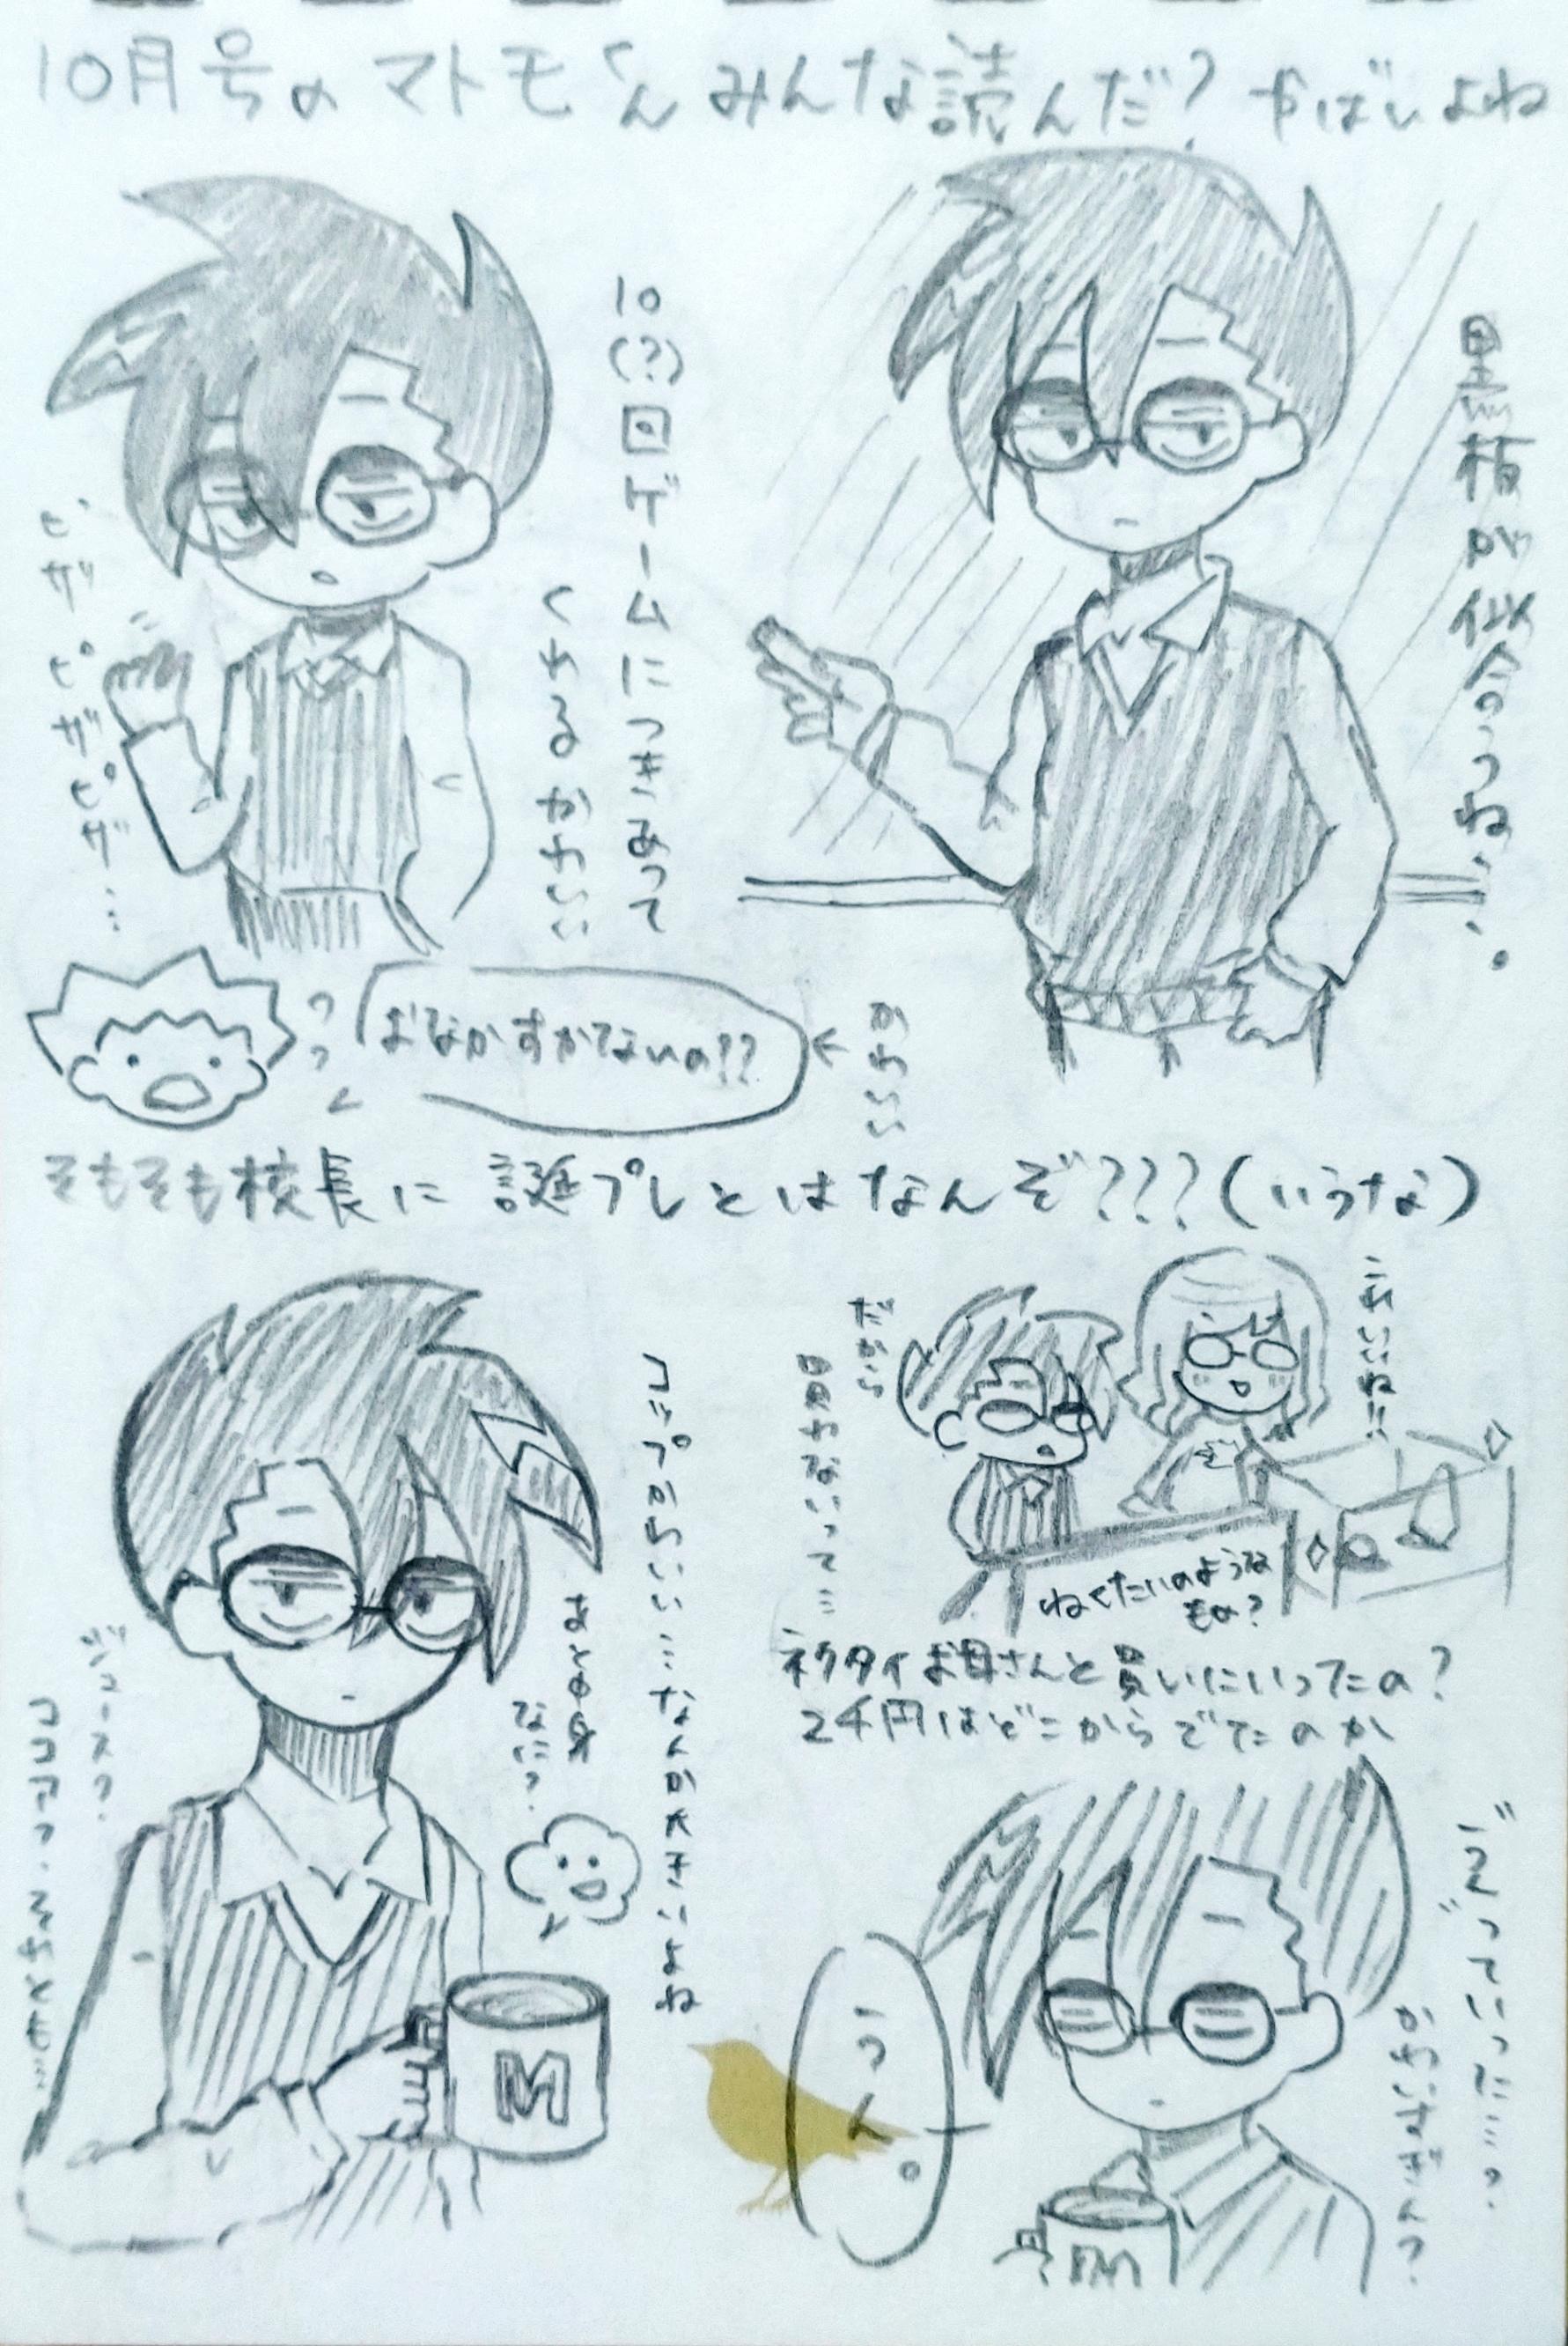 10月号のマトモくんみんな読んだ?やばいよね
黒板が似合うっね、、。
10(?)回ゲームにつきあって
くれるかわいい
ピザピザピザ…
かわいい
おなかすかないの??
そもそも校長に誕プレとはなんぞ???(いうな)
コップかわいい…なんか大きいよね
まとめ買
なに?
ジュース?
M
これいいね!!
ねくたいのような
もの?
ネクタイお母さんと買いにいったの?
2千円はどこからでてたのか
うん。
かわいすぎんか?
M